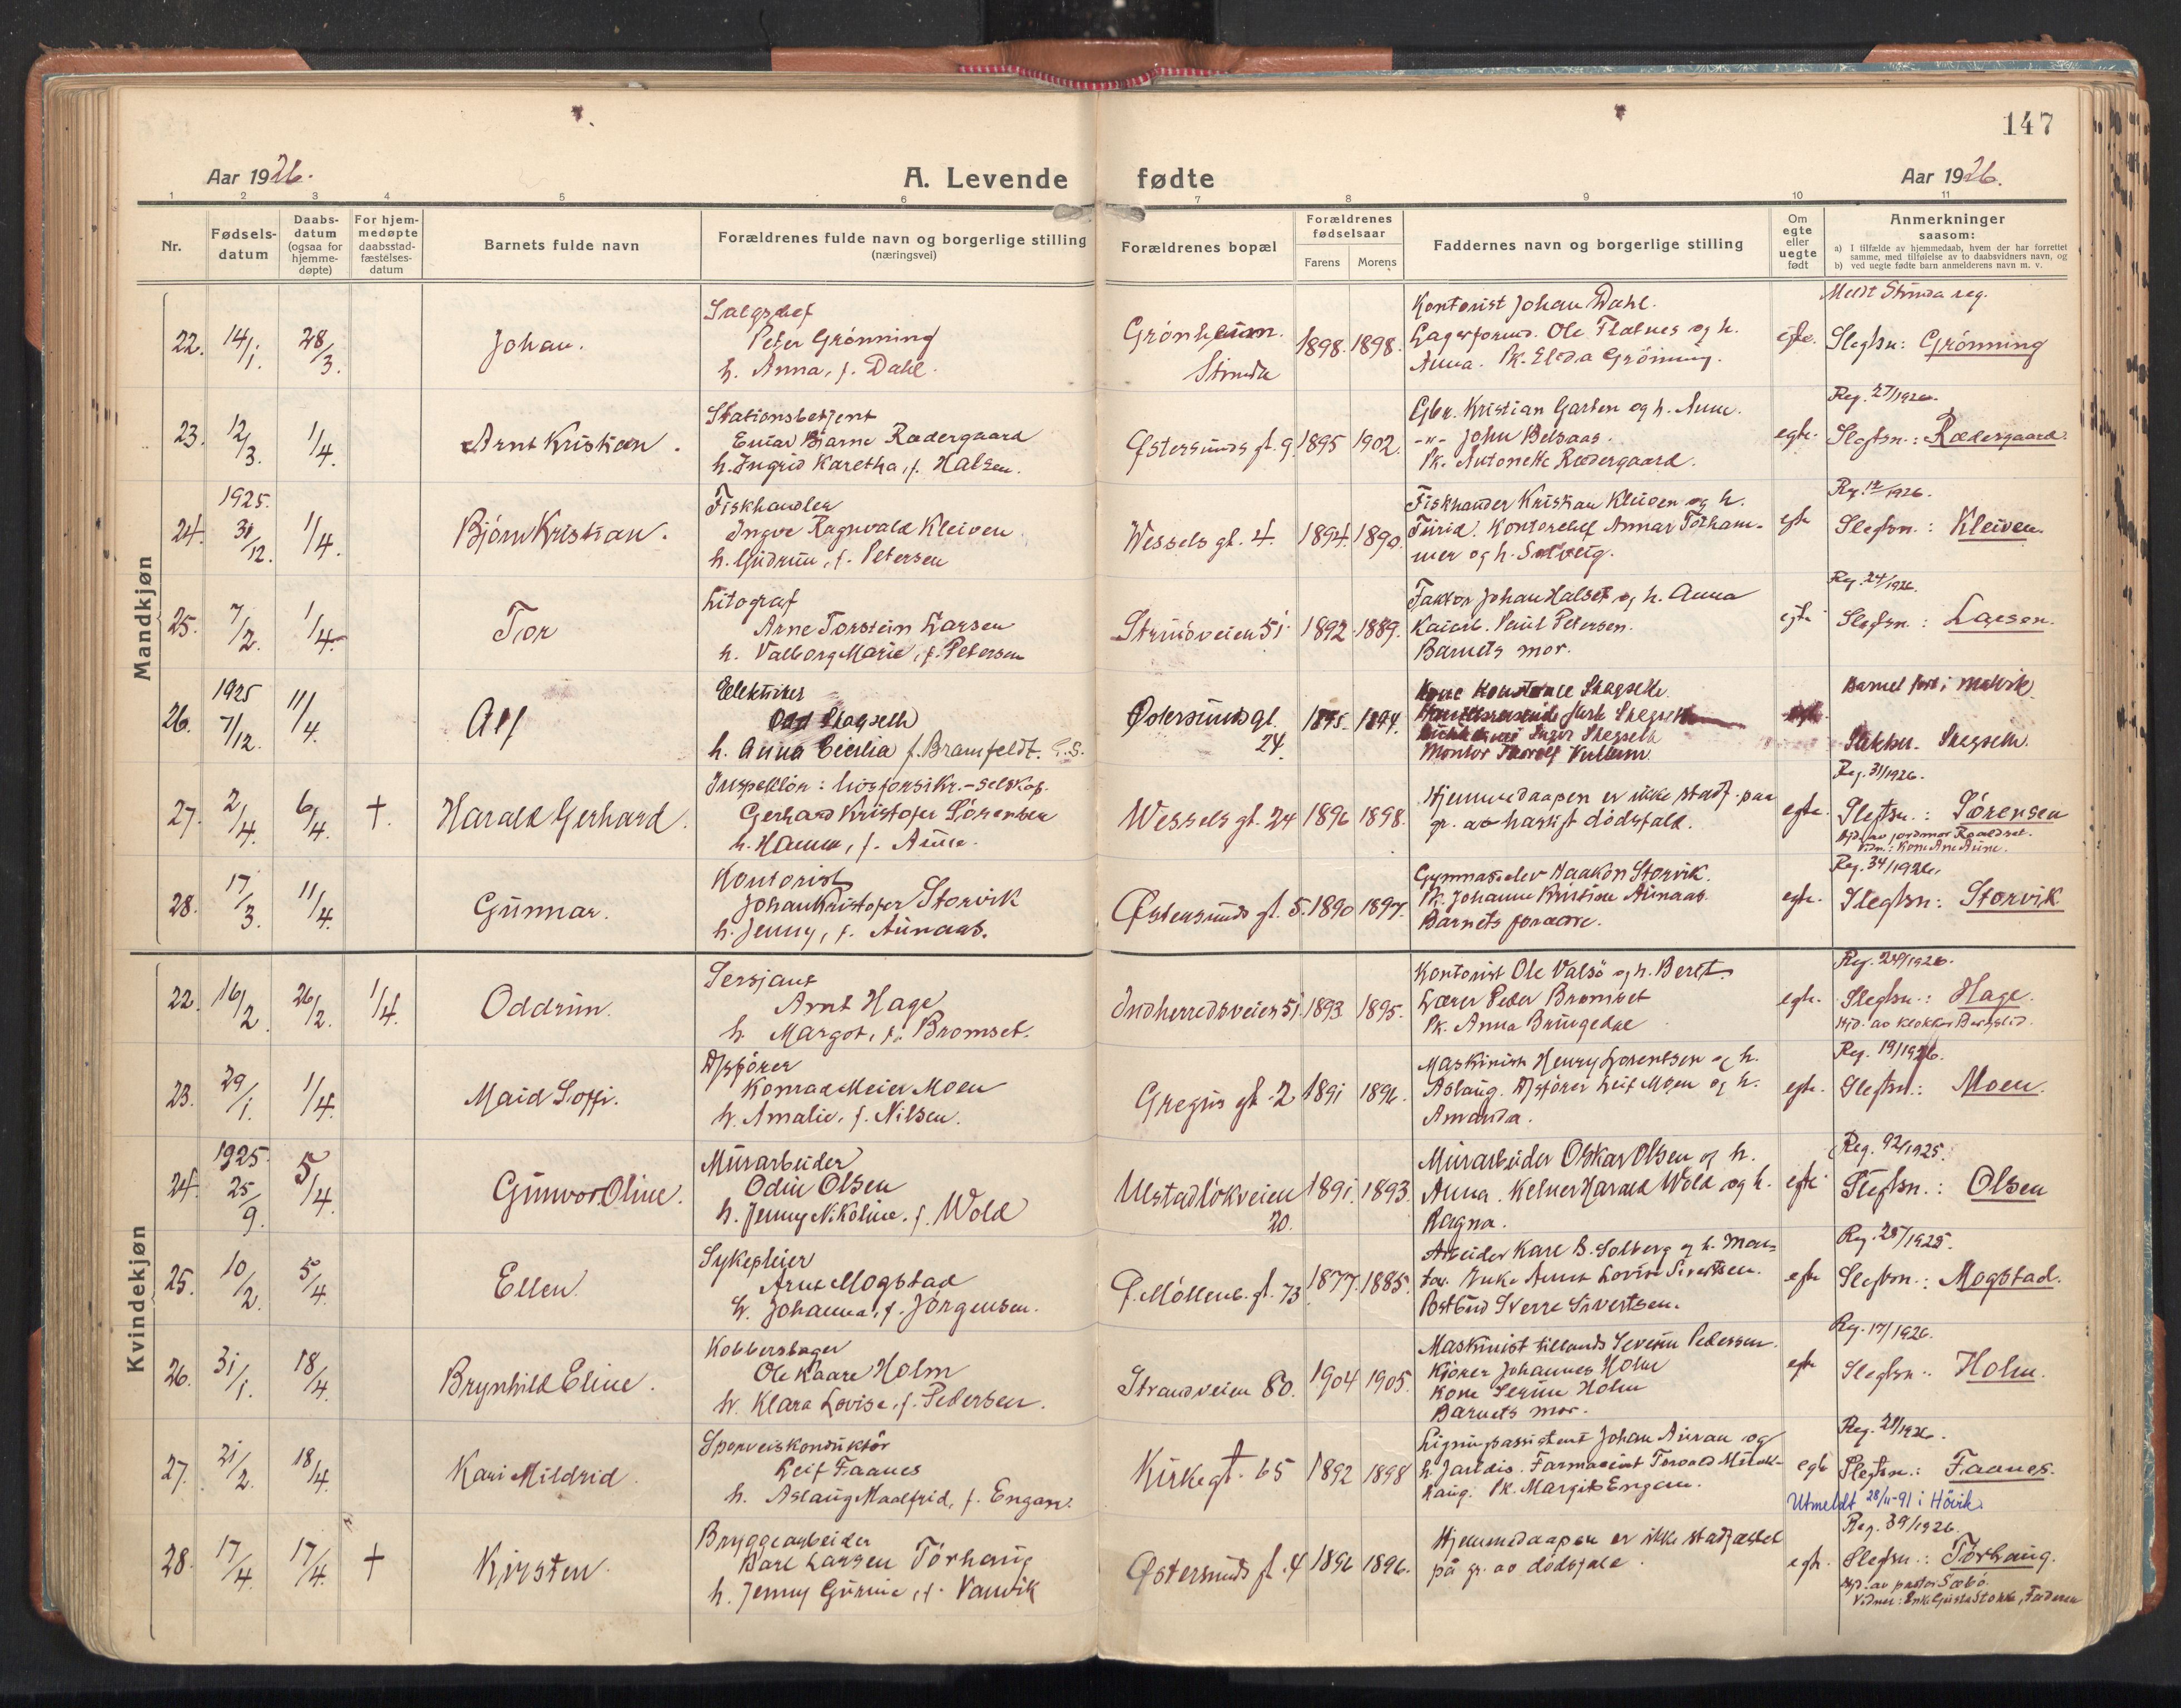 147
Aar 1926.
A. Levende fødte
Aar 1926.
1 2 3 4 5 6 7 8 9 10 11
Nr.
Fødsels-
datum
Daabs-
datum
(ogsaa for
hjemme-
døpte)
For hjem-
medøpte
daabsstad-
fæstelses-
datum
Barnets fulde navn
Forældrenes fulde navn og borgerlige stilling
(næringsvei)
Forældrenes bopæl
Forældrenes
fødselsaar
Farens Morens
Faddernes navn og borgerlige stilling
Om
egte
eller
uegte
født
Anmerkninger
saasom:
a) I tilfælde av hjemmedaab, hvem der har forrettet
samme, med tilføielse av to daabsvidners navn, og
b) ved uegte fødte barn anmelderens navn m. v.
Mandkjøn
22. 14/1. 28/3. Johan.
Salgschef
Peter Grønning
h. Anna, f. Dahl.
Grønheim.
Strinda
1898. 1898.
Kontorist Johan Dahl.
Lagerformd. Ole Flatnes og h.
Anna. Pk. Elida Grönning.
egte.
Meldt Strinda reg.
Slegtsn: Grønning
23. 12/3. 1/4. Arnt Kristian.
Stationsbetjent
Einar Bjarne Rødergaard
h. Ingrid Karetha, f. Halsen.
Østersunds gt. 9. 1895 1902.
Gbr. Kristian Garten og h. Anne.
-"- John Belsaas.
Pk. Antonette Rødergaard.
egte.
Reg. 27/1926.
Slegtsn.: Rødergaard.
24. 1925. 31/12. 1/4. Bjørn Kristian.
Fiskhandler
Ingvar Ragnvald Kleiven
h. Gudrun, f. Petersen
Wessels gt. 4. 1894. 1890.
Fiskhandler Kristian Kleiven og h.
Turid. Kontorchef Annar Torham-
mer og h. Solveig.
egte
Reg. 12/1926.
Slegtsn.: Kleiven.
25. 7/2. 1/4. Tor
Litograf
Arne Torstein Larsen
h. Valborg Marie, f. Petersen
Strindveien 51 1892. 1889.
Faktor Johan Halset og h. Anna
Kaiarb. Paul Petersen.
Barnets mor.
egte
Reg. 24/1926.
Slegtsn: Larsen.
26. 1925 7/12. 11/4. Alf
Elektriker
Odd Skagseth
h. Anna Cicilia f. Bramfeldt.
Østersunds gt.
24. 1894.
Kone Konstance Skagseth.
Inger Skagseth
Montør Thorolf Vullum
Barnet født i Malvik
Slektsn. Skagseth.
27. 2/4. 6/4. +. Harald Gerhard.
Inspektør: livsforsikr.-selskap.
Gerhard Kristofer Sørensen
h. Hanna, f. Aune.
Wessels gt. 24 1896 1898.
Hjemmedaapen er ikke stadf. paa
gr. av hastigt dödsfald.
egte.
Reg. 31/1926.
Slegtsn.: Sørensen
Hjd. av jordmor Roaldset.
Vidn.: Kone Ane Aune.
28. 17/3. 11/4. Gunnar.
Kontorist
Johan Kristofer Storvik
h. Jenny, f. Aunaas.
Østersunds gt. 5. 1890 1897.
Gymnaselev Haakon Storvik.
Pk. Johanne Kristine Aunaas.
Barnets forældre.
egte.
Reg. 34/1926.
Slegtsn: Storvik
Kvindekjøn
22. 16/2. 26/2. 1/4. Oddrun.
Sersjant
Arnt Hage
h. Margot, f. Bromset.
Indherredsveien 51. 1893 1895.
Kontorist Ole Valsø og h. Beret.
Lærer Peder Bromset
Pk. Anna Bruugedal
egte.
Reg. 28/1926.
Slegtsn.: Hage.
Hjd. av klokker Bergslid.
23. 29/1. 1/4. Maid Soffi.
Opsjører
Konrad Meier Moen
h. Amalie, f. Nilsen.
Gregus gt. 2 1891 1896.
Maskinist Henry Lorentsen og h.
Aslaug. Leif Moen og h.
Amanda.
egte.
Reg. 19/1926.
Slegtsn.: Moen.
24. 1925. 25/9. 5/4. Gunvor Oline.
Murarbeider
Odin Olsen
h. Jenny Nikoline, f. Wold
Ulstadløkveien
20. 1891. 1893.
Murarbeider Oskar Olsen og h.
Anna. Kelner Harald Wold og h.
Ragna.
egte
Reg. 92/1925.
Slegtsn.: Olsen
25. 10/2. 5/4. Ellen.
Sykepleier
Arne Mogstad
h. Johanna, f. Jørgensen.
Ø. Møllenb. gt. 73 1877. 1885.
Arbeider Kare B. Solberg og h. Mar-
ta. Enke Anna Lovise Sivertsen.
Postbud Sverre Sivertsen.
egte
Reg. 25/1925.
Slegtsn.: Mogstad.
26. 31/1. 18/4. Brynhild Eline.
Kobberslager
Ole Kaare Holm
h. Klara Lovise, f. Pedersen.
Strandveien 80. 1904 1905.
Maskinist tillands Severin Pedersen.
Kjører Johannes Holm
Kone Serine Holm
Barnets mor.
egte
Reg. 17/1926.
Slegtsn.: Holm.
27. 21/2. 18/4. Kari Mildrid.
Sporveiskonduktör
Leif Faanes
h. Aslaug Maalfrid, f. Engan.
Kirkegt. 65 1892 1898
Ligningsassistent Johan Aunan og
h. Jarldis. Farmaceut Torvald
haug. Pk. Margit Engan.
egte
Reg. 29/1926.
Slegtsn.: Faanes.
Utmeldt 28/11-91 i Hövik.
28. 17/4. 17/4. + Kirsten.
Bryggearbeider
Karl Larsen Tørhaug
h. Jenny Gurine, f. Vanvik
Østersunds gt. 4 1896 1896.
Hjemmedaapen er ikke stadfæstet
på gr. av dödsfald.
egte.
Reg. 39/1926.
Slegtsn.: Tørhaug.
Hjd. av pastor Sæbö.
Vidner: Enke Gusta Stokke, Faderen